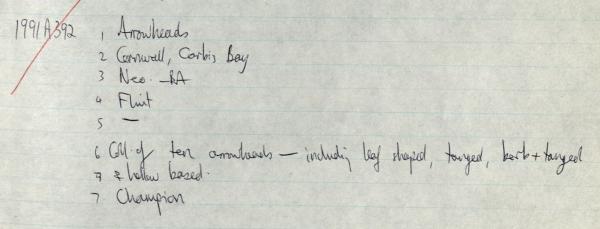 1991A392 1 Arrowheads
2 Cornwall, Carbis Bay
3 Neo - BA
4 Flint
5 —
6 Coll. of ten arrowheads — including leaf shaped, tanged, barb + tanged
7 & hollow based.
7 Champion